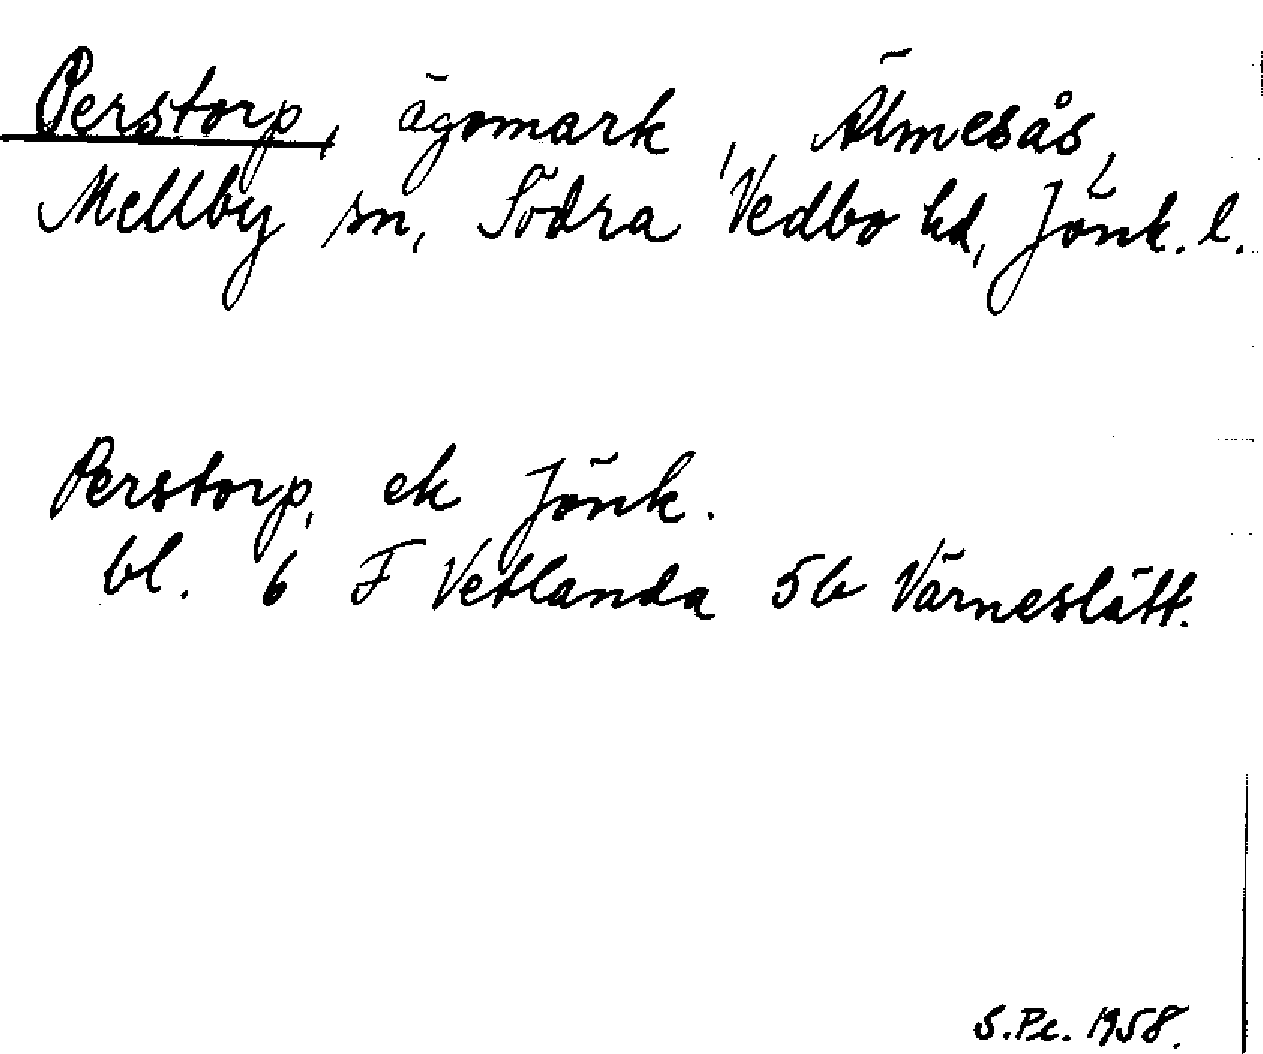 Perstorp, ägomark, Älmesås,
Mellby sn, Södra Vedbo hd, Jönk. l.
Perstorp, ek Jönk.
bl. 6 F Vetlanda 5b Värneslätt.
S.Pe. 1958.